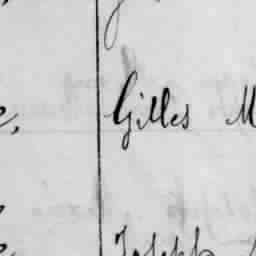 Gilles M
Joseph